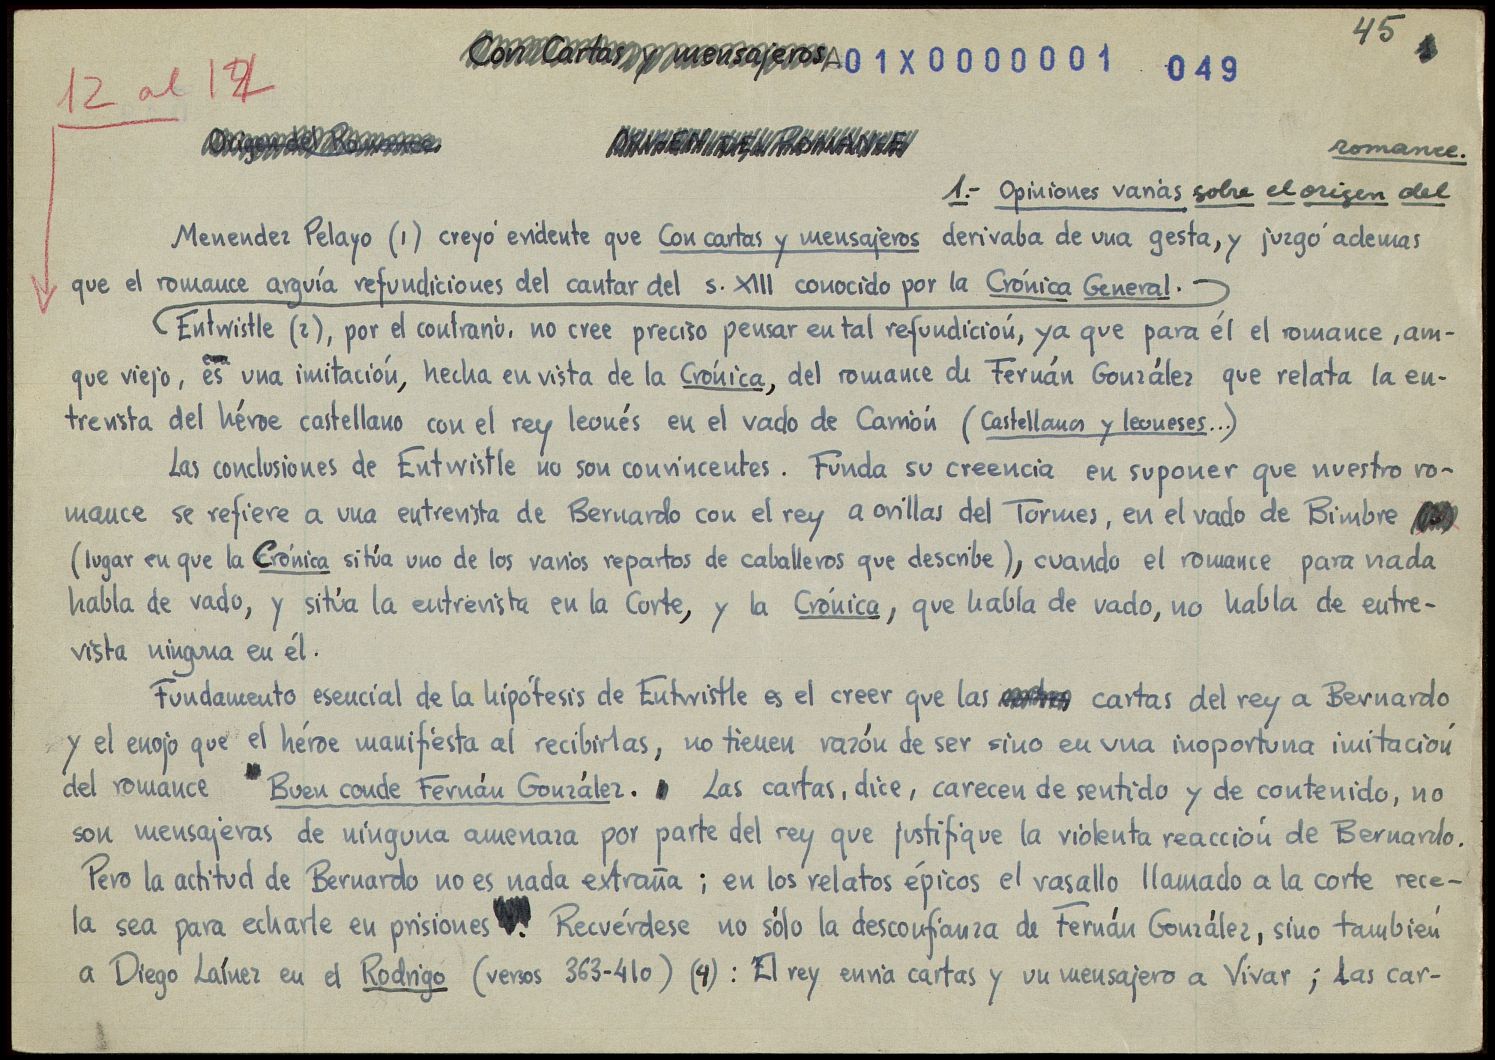 45
Con Cartas y mensajeros A01X0000001 049
12 al 12
Origen del Romance. ORIGEN DEL ROMANCE
romance.
1.- Opiniones varias sobre el origen del
Menendez Pelayo (1) creyó evidente que Con cartas y mensajeros derivaba de una gesta, y juzgó ademas
que el romance arguía refundiciones del cantar del s. XIII conocido por la Crónica General.
Entwistle (2), por el contrario, no cree preciso pensar en tal refundición, ya que para él el romance, aun-
que viejo, es una imitación, hecha en vista de la Crónica, del romance de Fernán González que relata la en-
trevista del héroe castellano con el rey leonés en el vado de Carrión (Castellanos y leoneses...)
Las conclusiones de Entwistle no son convincentes. Funda su creencia en suponer que nuestro ro-
mance se refiere a una entrevista de Bernardo con el rey a orillas del Tormes, en el vado de Bimbre
(lugar en que la Crónica sitúa uno de los varios repartos de caballeros que describe), cuando el romance para nada
habla de vado, y sitúa la entrevista en la Corte, y la Crónica, que habla de vado, no habla de entre-
vista ninguna en él.
Fundamento esencial de la hipótesis de Entwistle es el creer que las cartas del rey a Bernardo
y el enojo que el héroe manifiesta al recibirlas, no tienen razón de ser sino en una inoportuna imitación
del romance "Buen conde Fernán González. Las cartas, dice, carecen de sentido y de contenido, no
son mensajeras de ninguna amenaza por parte del rey que justifique la violenta reacción de Bernardo.
Pero la actitud de Bernardo no es nada extraña; en los relatos épicos el vasallo llamado a la corte rece-
la sea para echarle en prisiones. Recuérdese no sólo la desconfianza de Fernán González, sino también
a Diego Laínez en el Rodrigo (versos 363-410) (4): El rey envia cartas y un mensajero a Vivar; Las car-